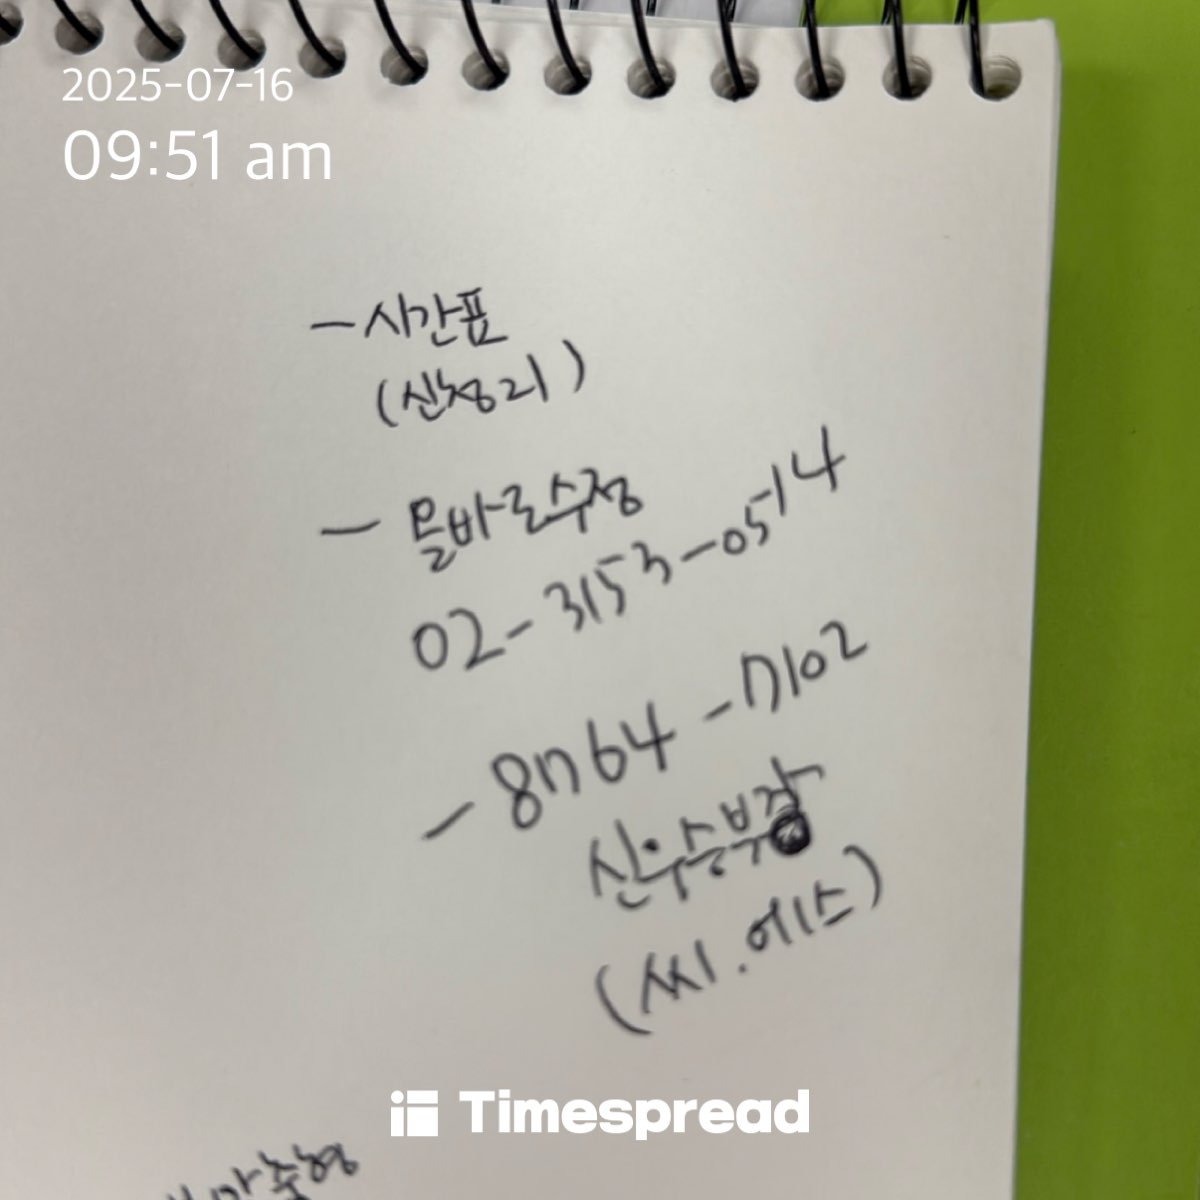 2025-07-16
09:51 am
- 시간표
(신청리)
- 물바로수정
02-3153-0514
- 8764-7102
신우승부장
(씨.에스)
Timespread
맞춤형